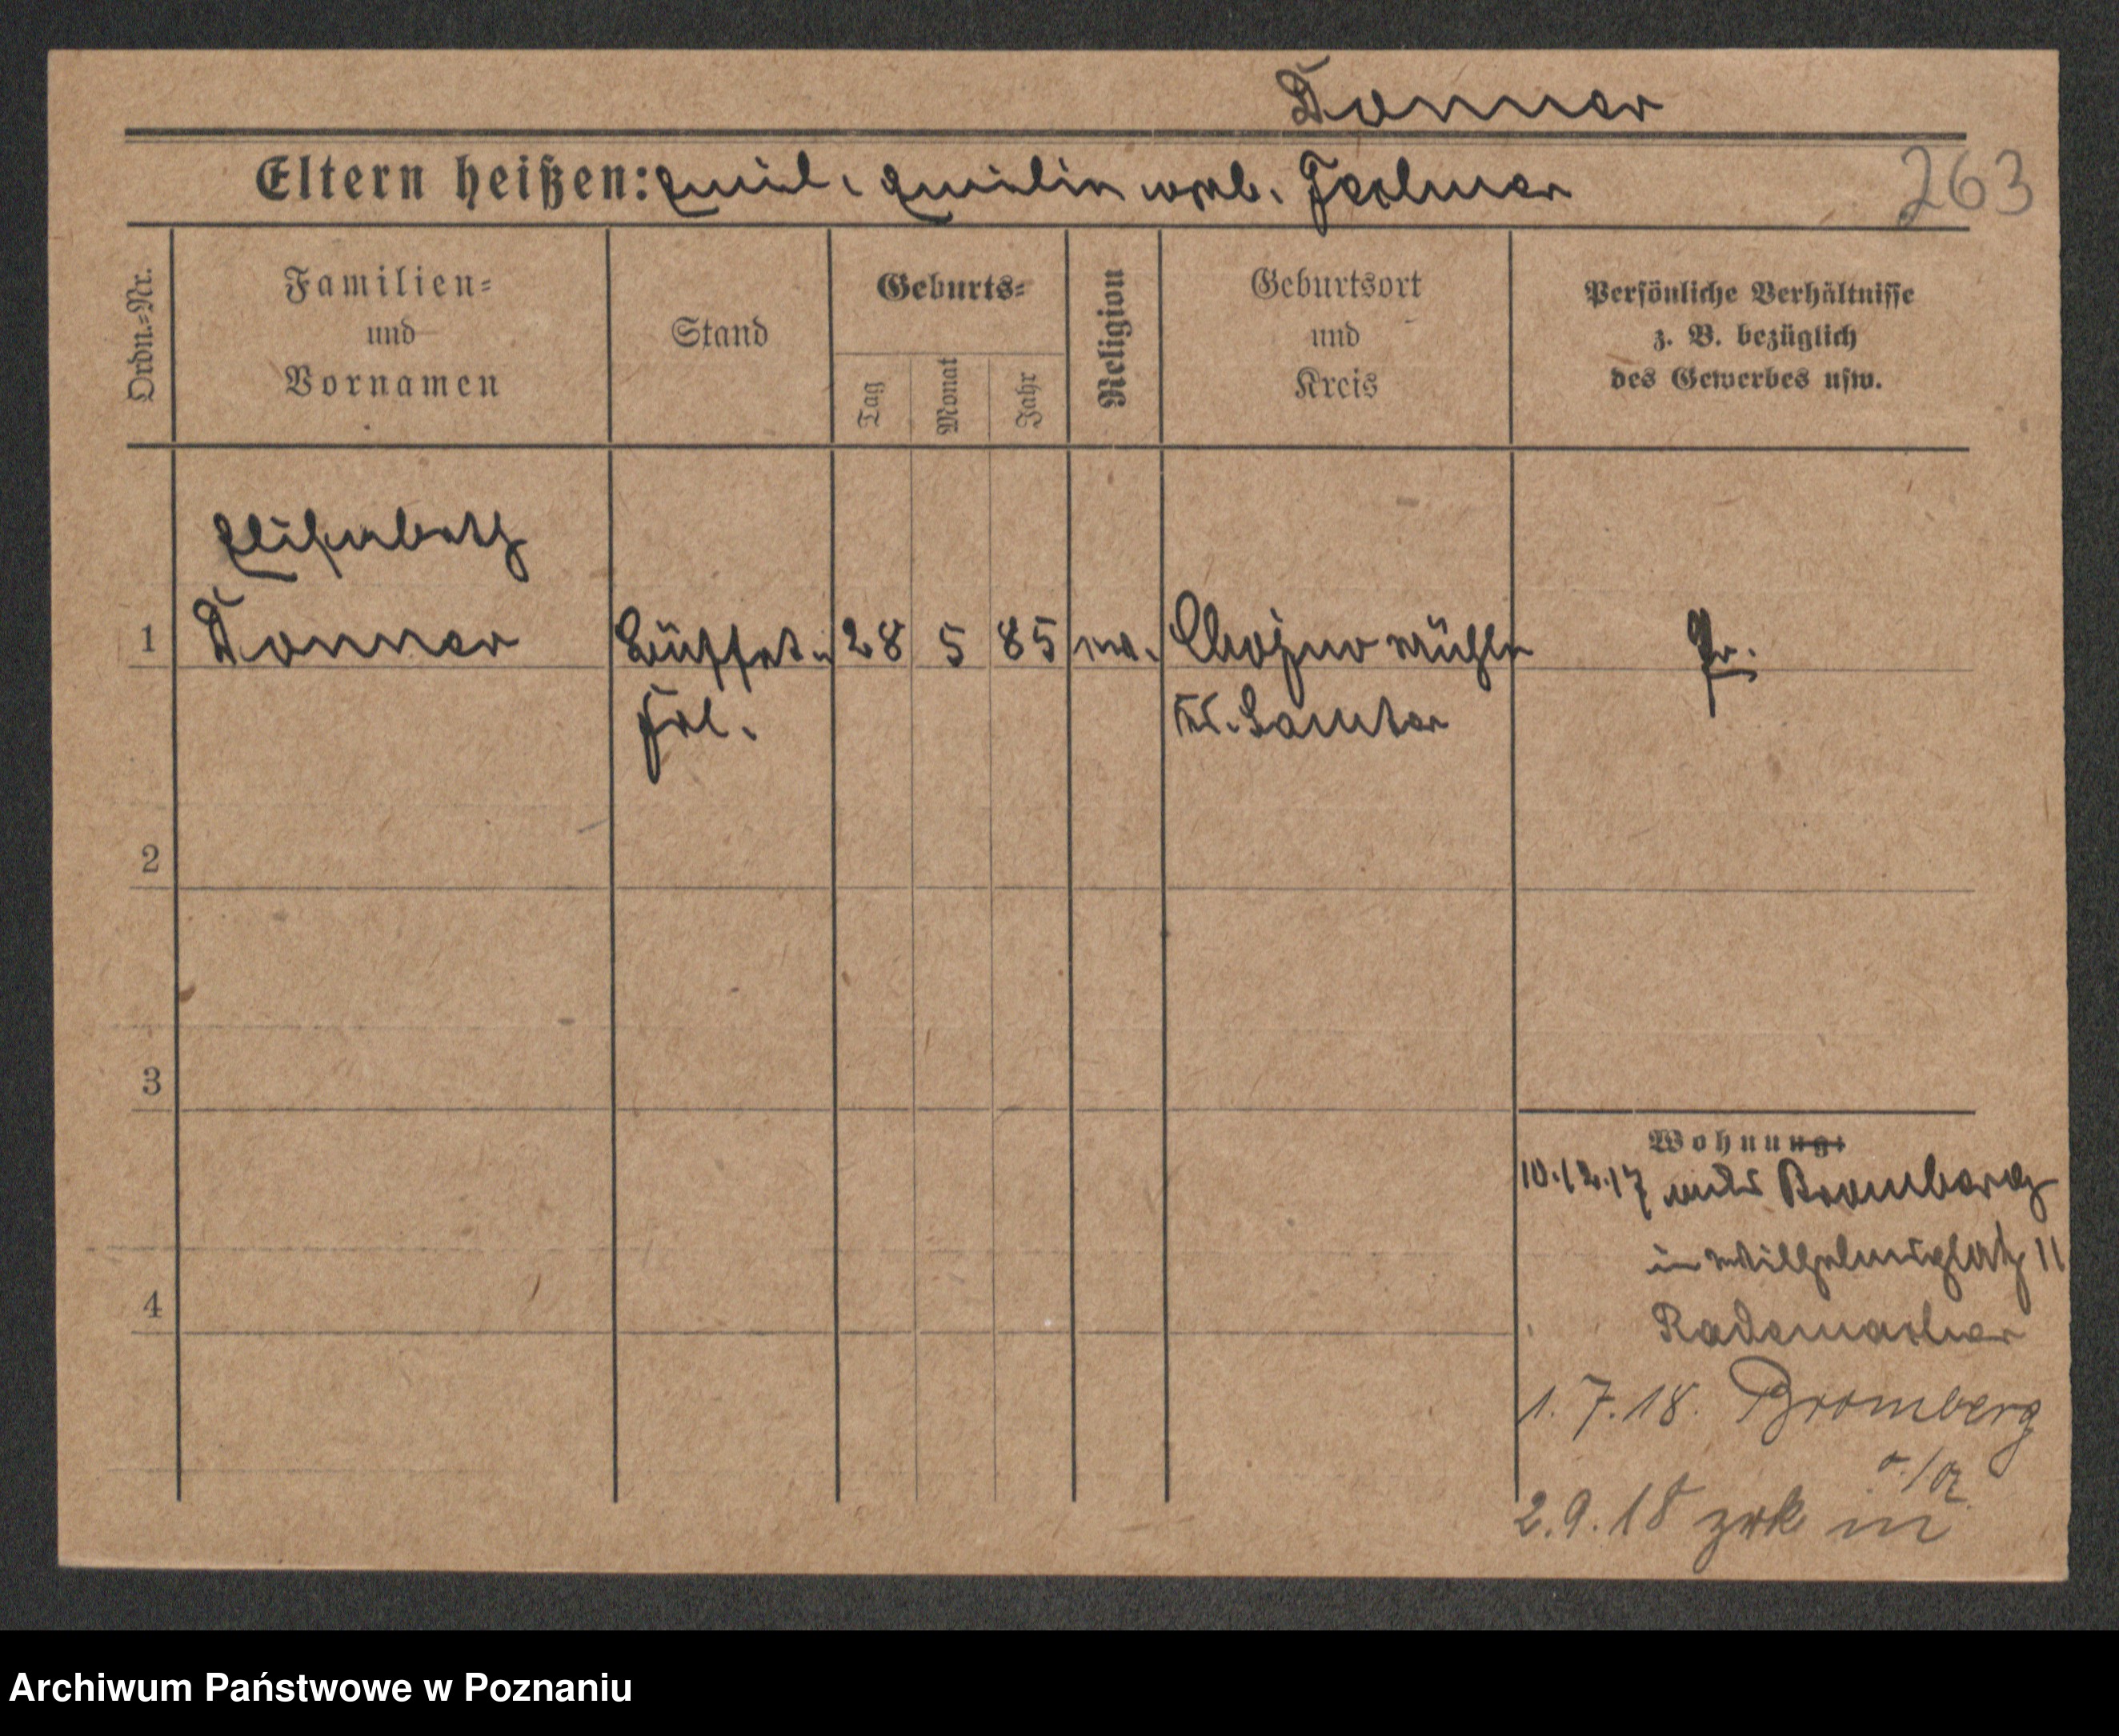 Donner
Eltern heißen: Emil, Emilie geb. Fellmer
263
Ordn.=Nr.
Familien=
und
Vornamen
Stand
Geburts=
Tag
Monat
Jahr
Religion
Geburtsort
und
Kreis
Persönliche Verhältnisse
z. B. bezüglich
des Gewerbes usw.
Elisabeth
1 Donner Büffet- 28 5 85 ev. Chojno Mühle Pr.
Frl. Kr. Samter
2
3
Wohnung:
10.12.17 aus Bromberg
in Wilhelmsplatz 11
4
Rademacher
1.7.18. Bromberg
2.9.18 zrk in
Archiwum Państwowe w Poznaniu